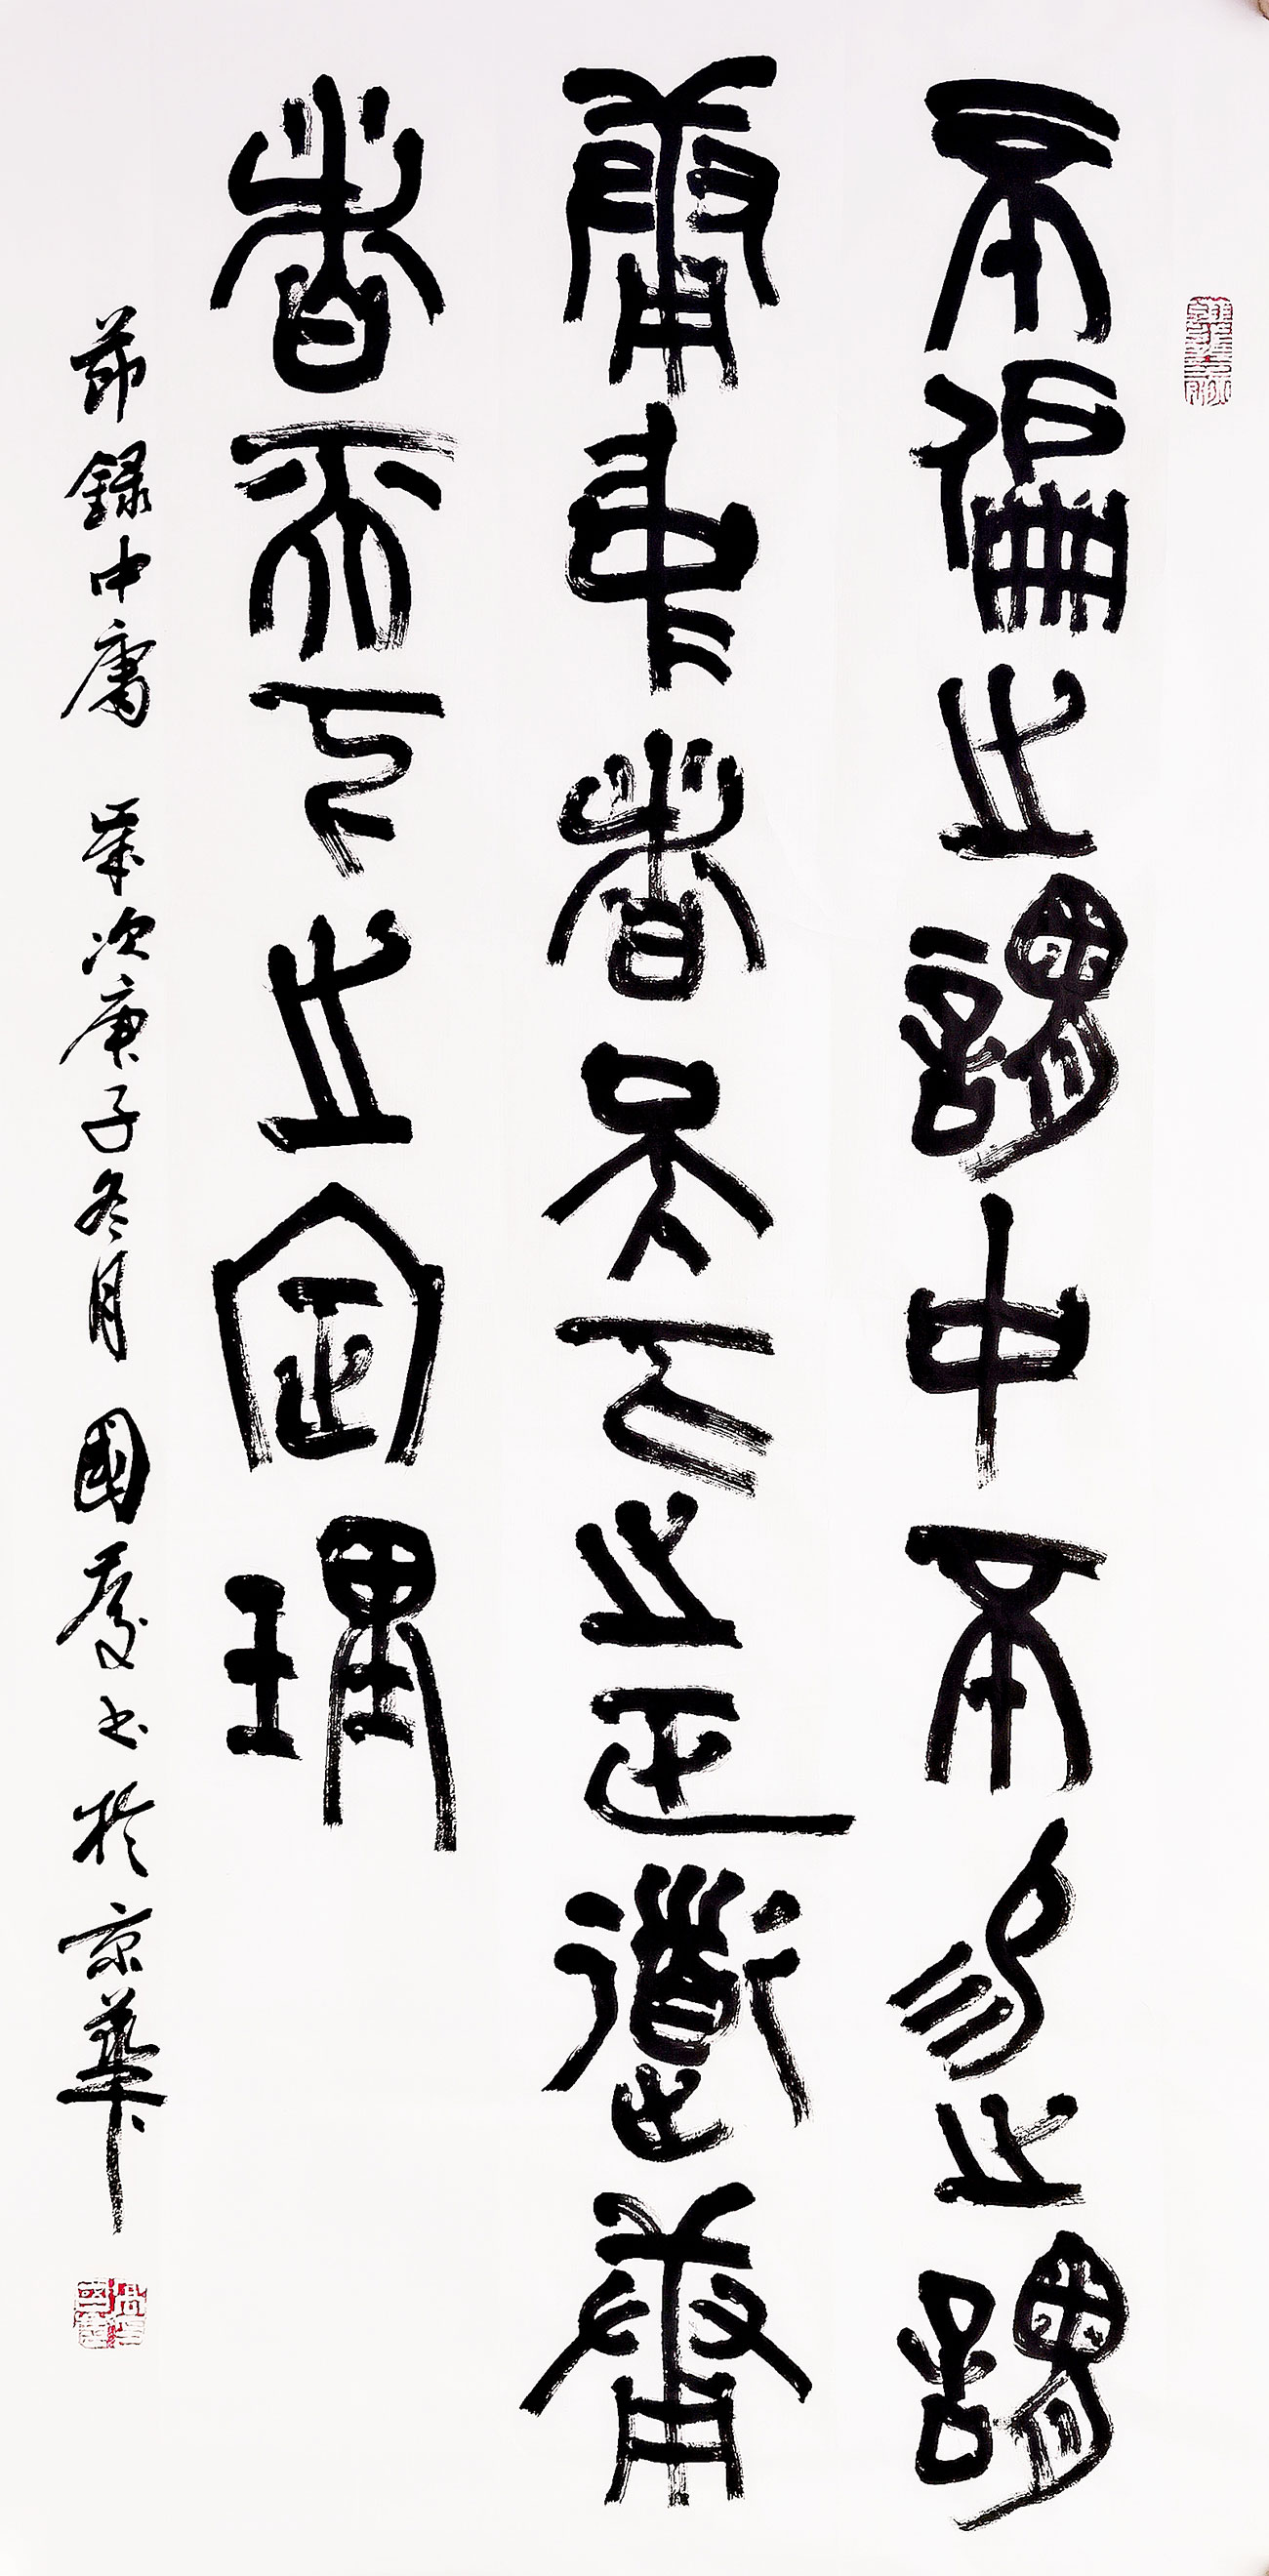 不偏之謂中不易之謂
庸中者天下之正道庸
者天下之定理
節錄中庸 歲次庚子冬月 國慶书於京華